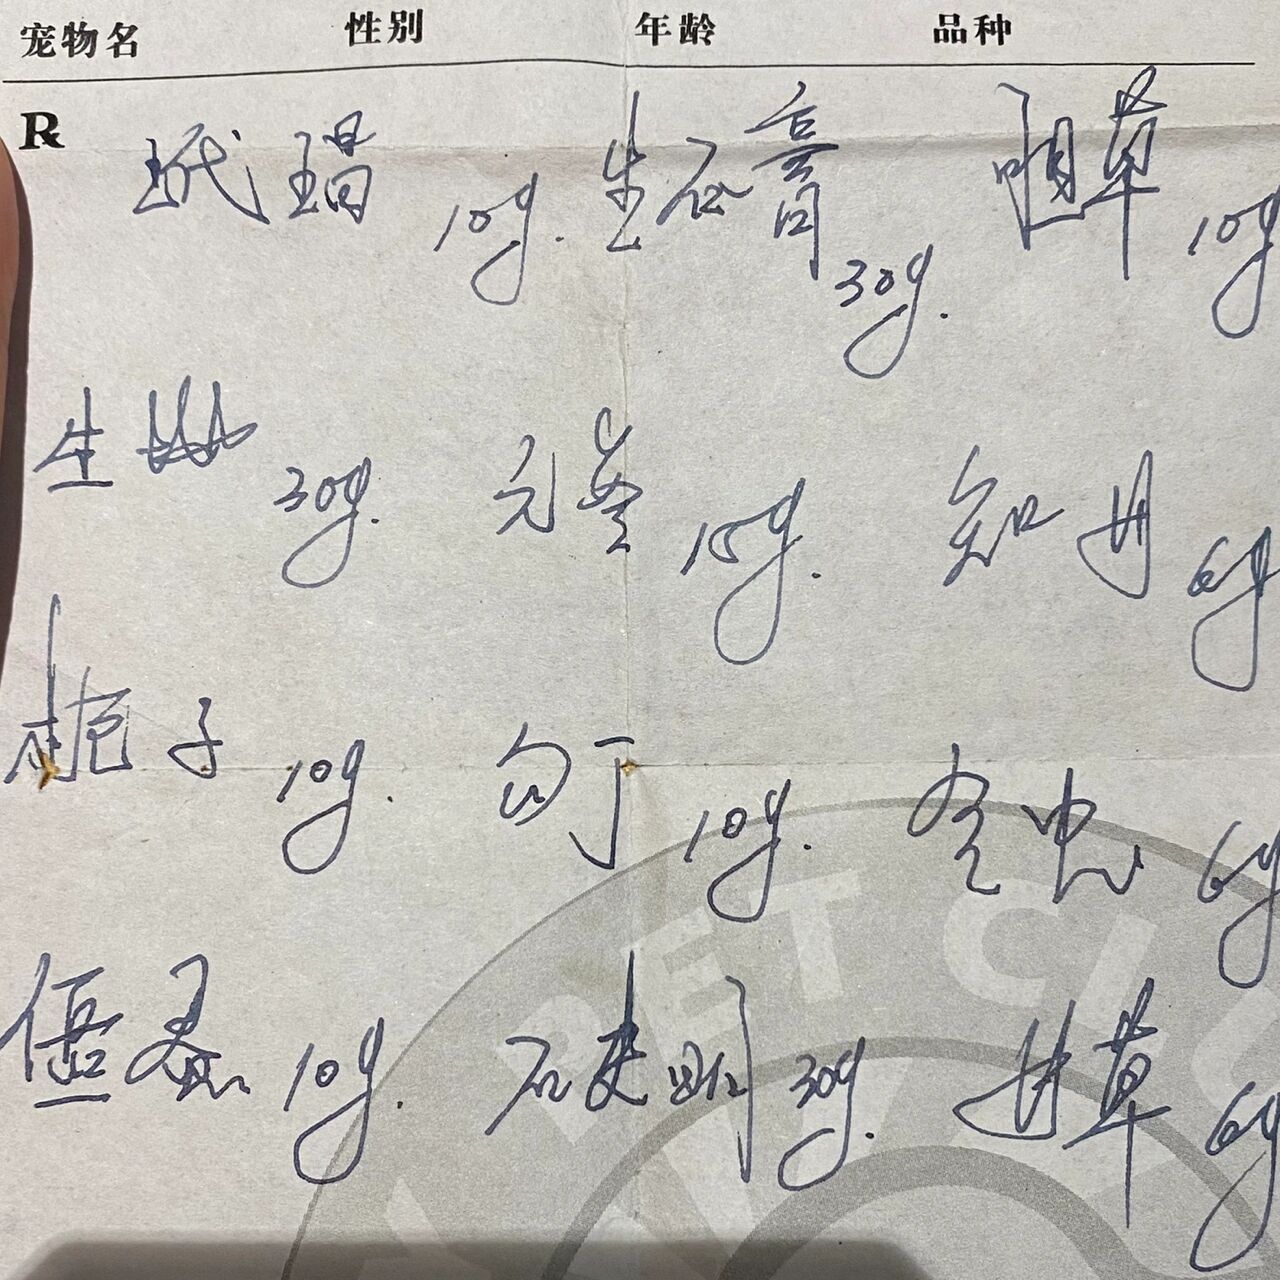 宠物名 性别 年龄 品种
R 玳瑁 10g. 生石膏 30g. 胆草 10g
生地 30g. 元参 15g. 知母 6g
栀子 10g. 勾丁 10g. 全虫 6g
僵蚕 10g. 石决明 30g. 甘草 6g
PET